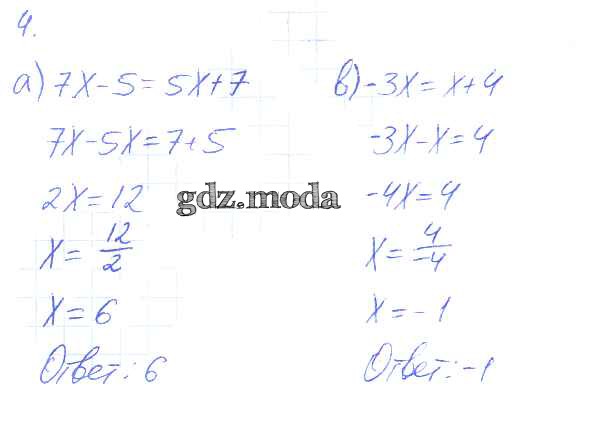 4.
а) 7x-5=5x+7
7x-5x=7+5
2x=12
x=12/2
x=6
Ответ: 6
в) -3x=x+4
-3x-x=4
-4x=4
x=4/-4
x=-1
Ответ: -1
gdz.moda